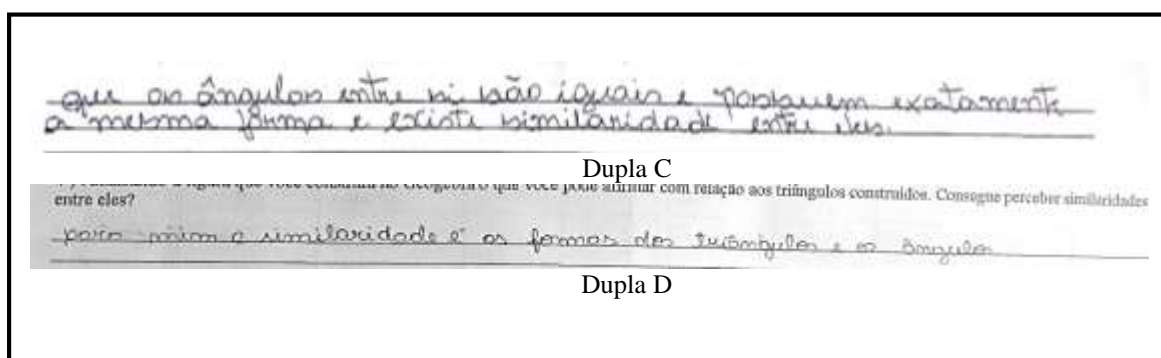 que os ângulos entre si são iguais e possuem exatamente
a mesma forma e existe similaridade entre eles.
Dupla C
que você construiu no Geogebra o que você pode afirmar com relação aos triângulos construídos. Consegue perceber similaridades
entre eles?
para mim a similaridade é as formas dos triângulos e os ângulos
Dupla D